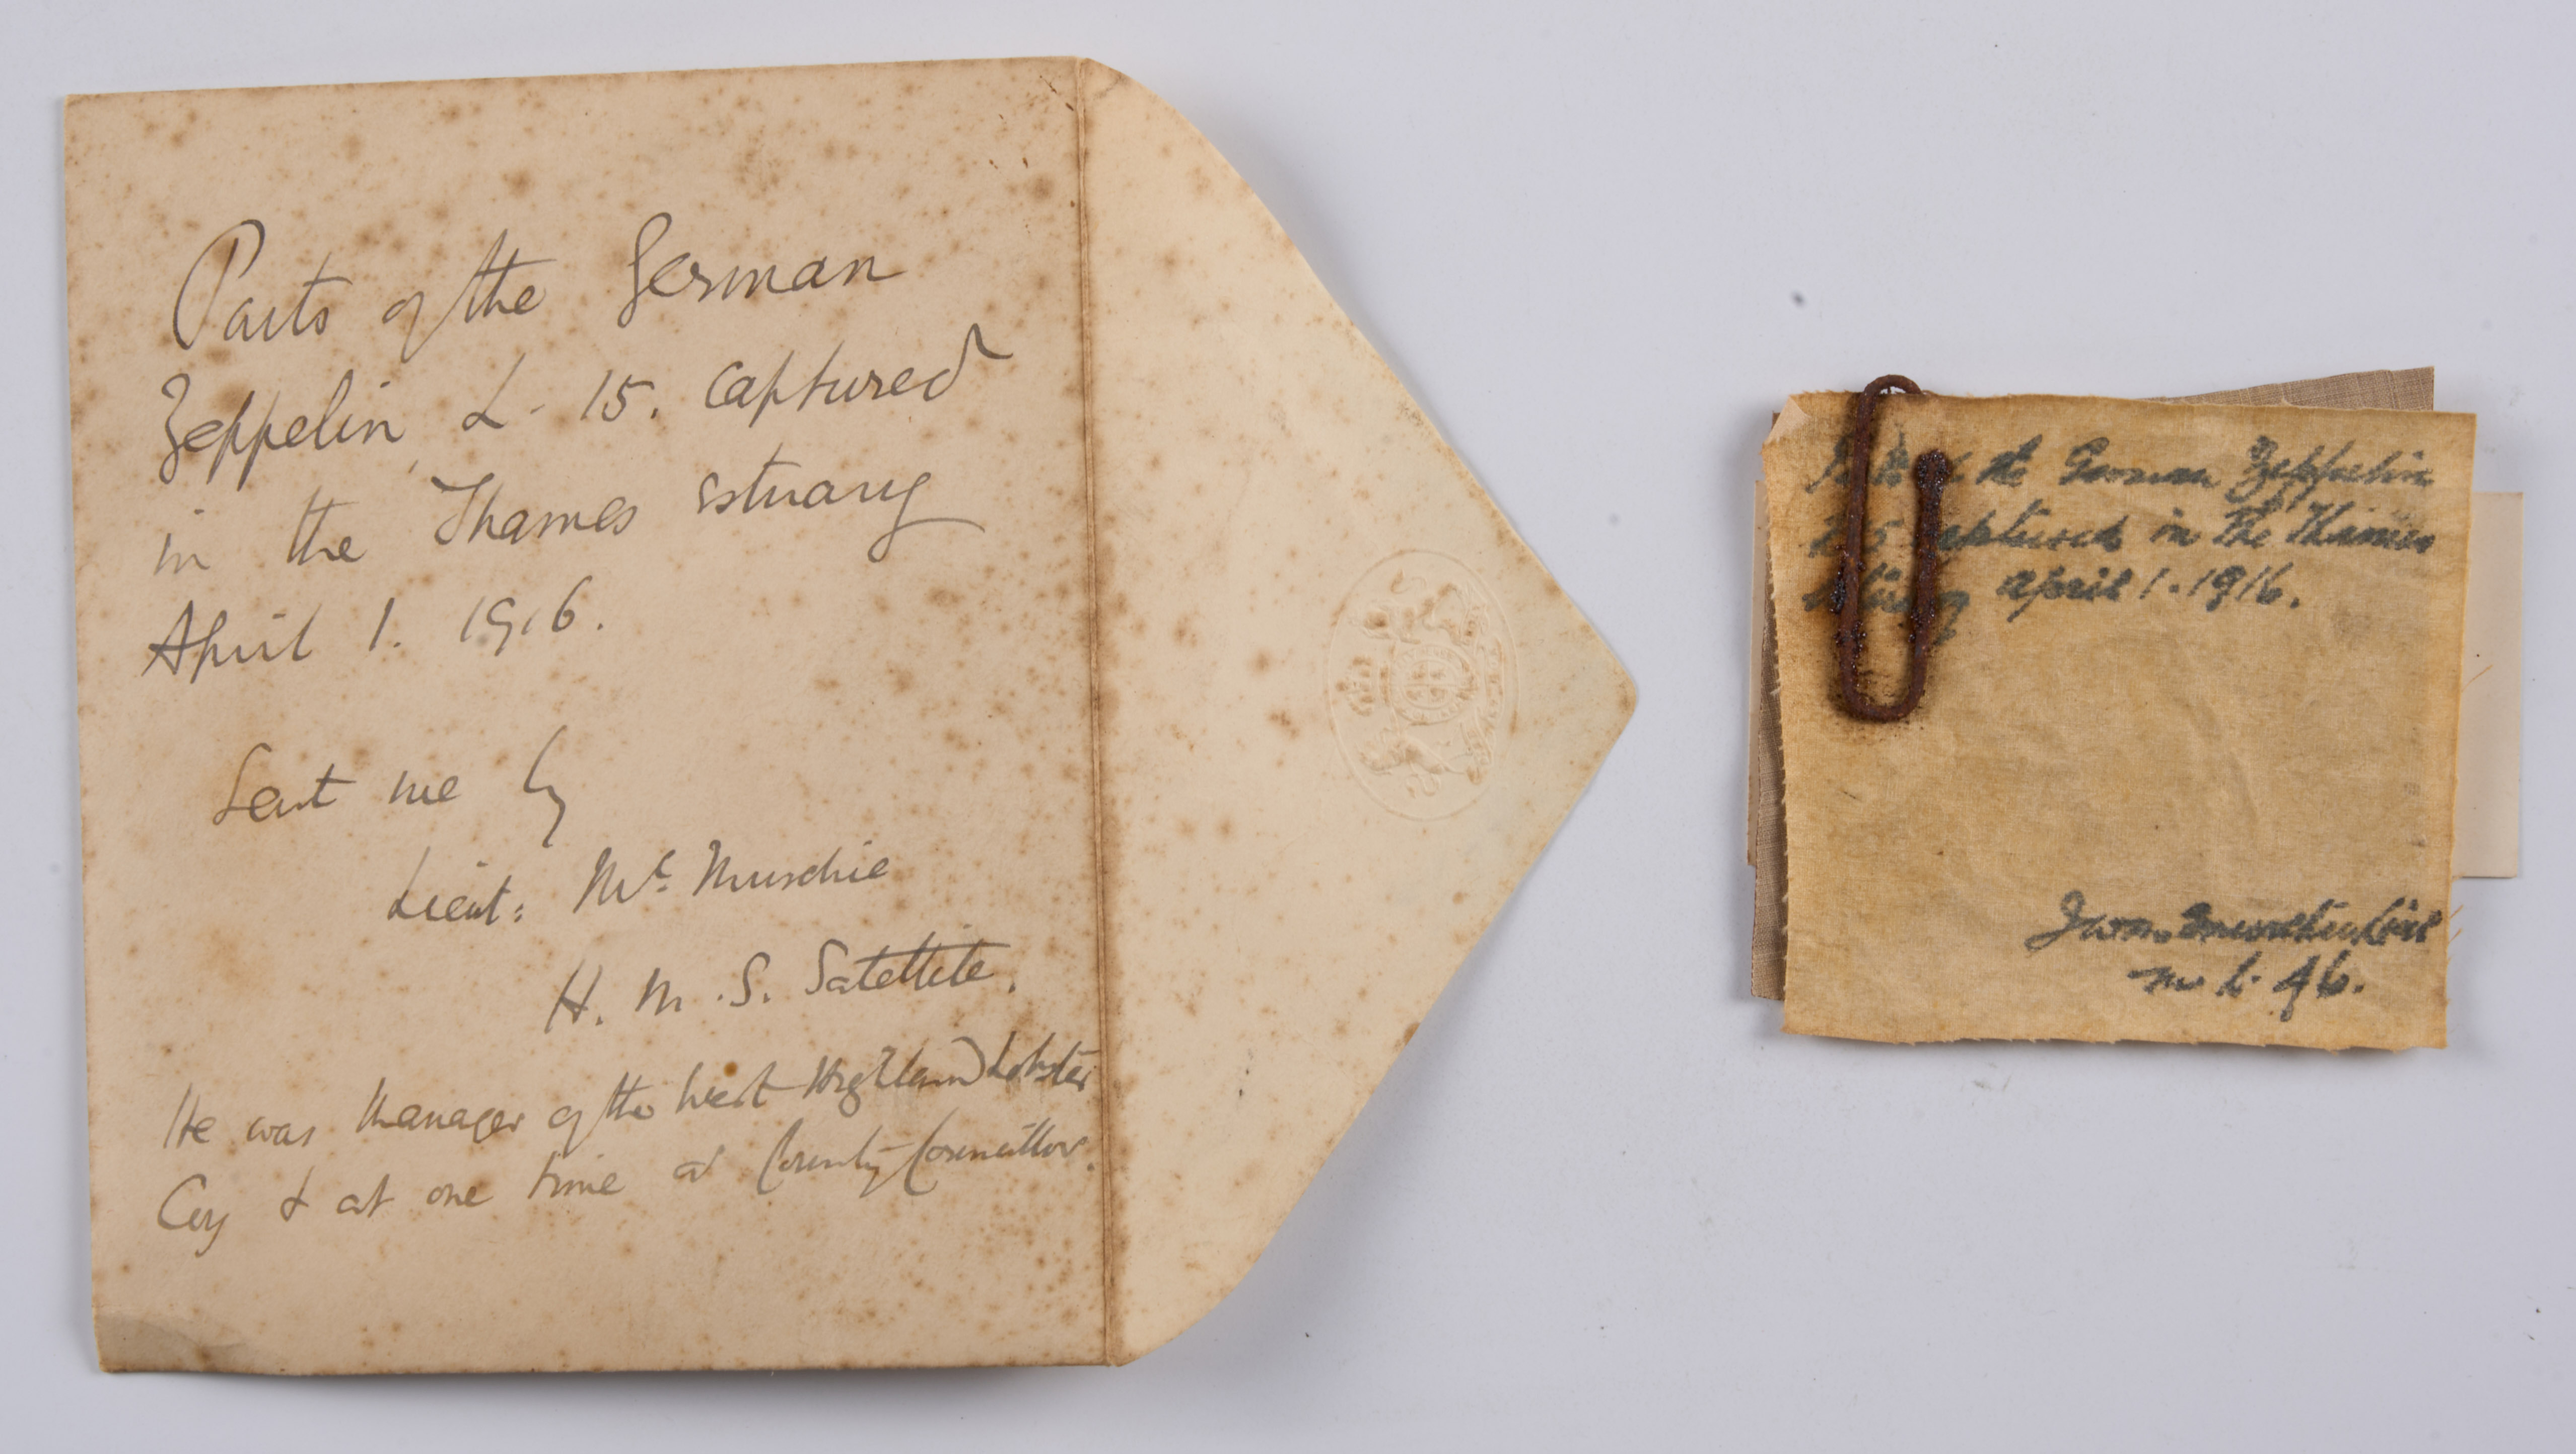 Parts of the German
Zeppelin L- 15. captured
in the Thames Estuary
April 1. 1916.
Sent me by
Lieut: Mc Murchie
H. M. S. Satellite.
He was Manager of the West Highland Lobster
Coy & at one time a County Councillor.
the German Zeppelin
captured in the Thames
April 1. 1916.